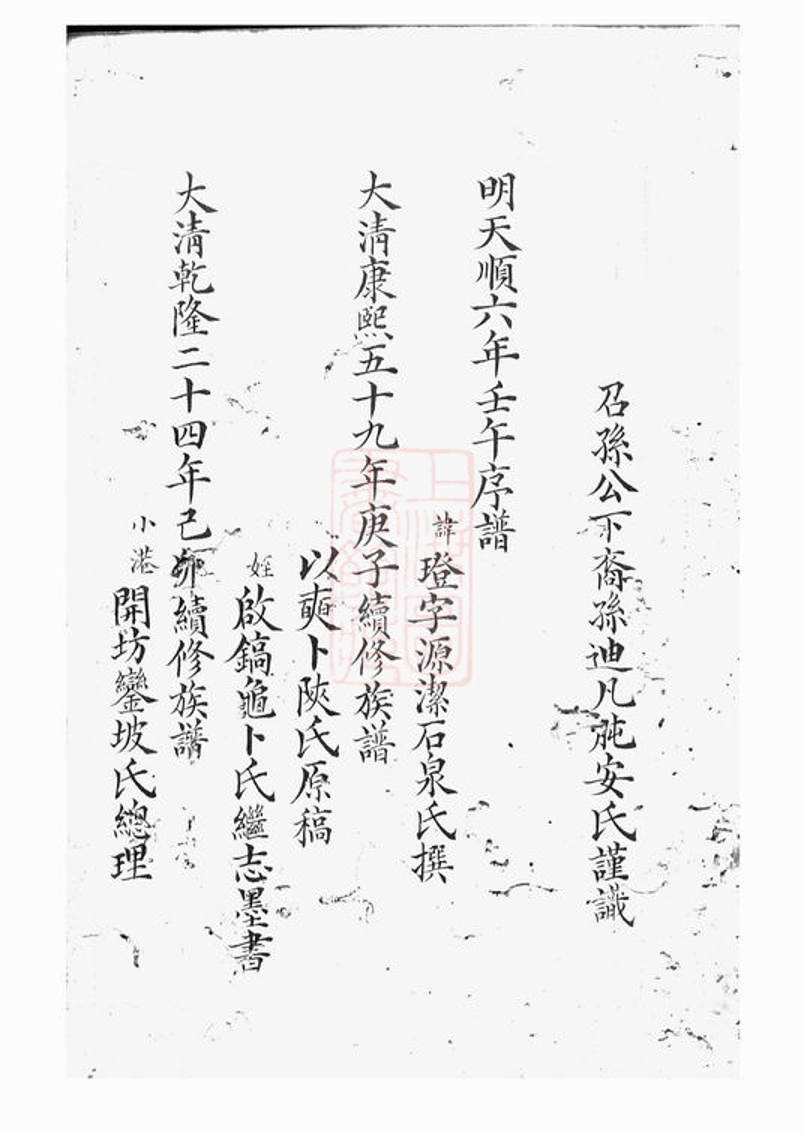 召孫公下裔孫迪凡肫安氏謹識
明天順六年壬午序譜
諱璒字源潔石泉氏撰
大清康熙五十九年庚子續修族譜
以奭卜陜氏原稿
姪啟鎬龜卜氏繼志墨書
大清乾隆二十四年己卯續修族譜
小港開坊鑾坡氏總理